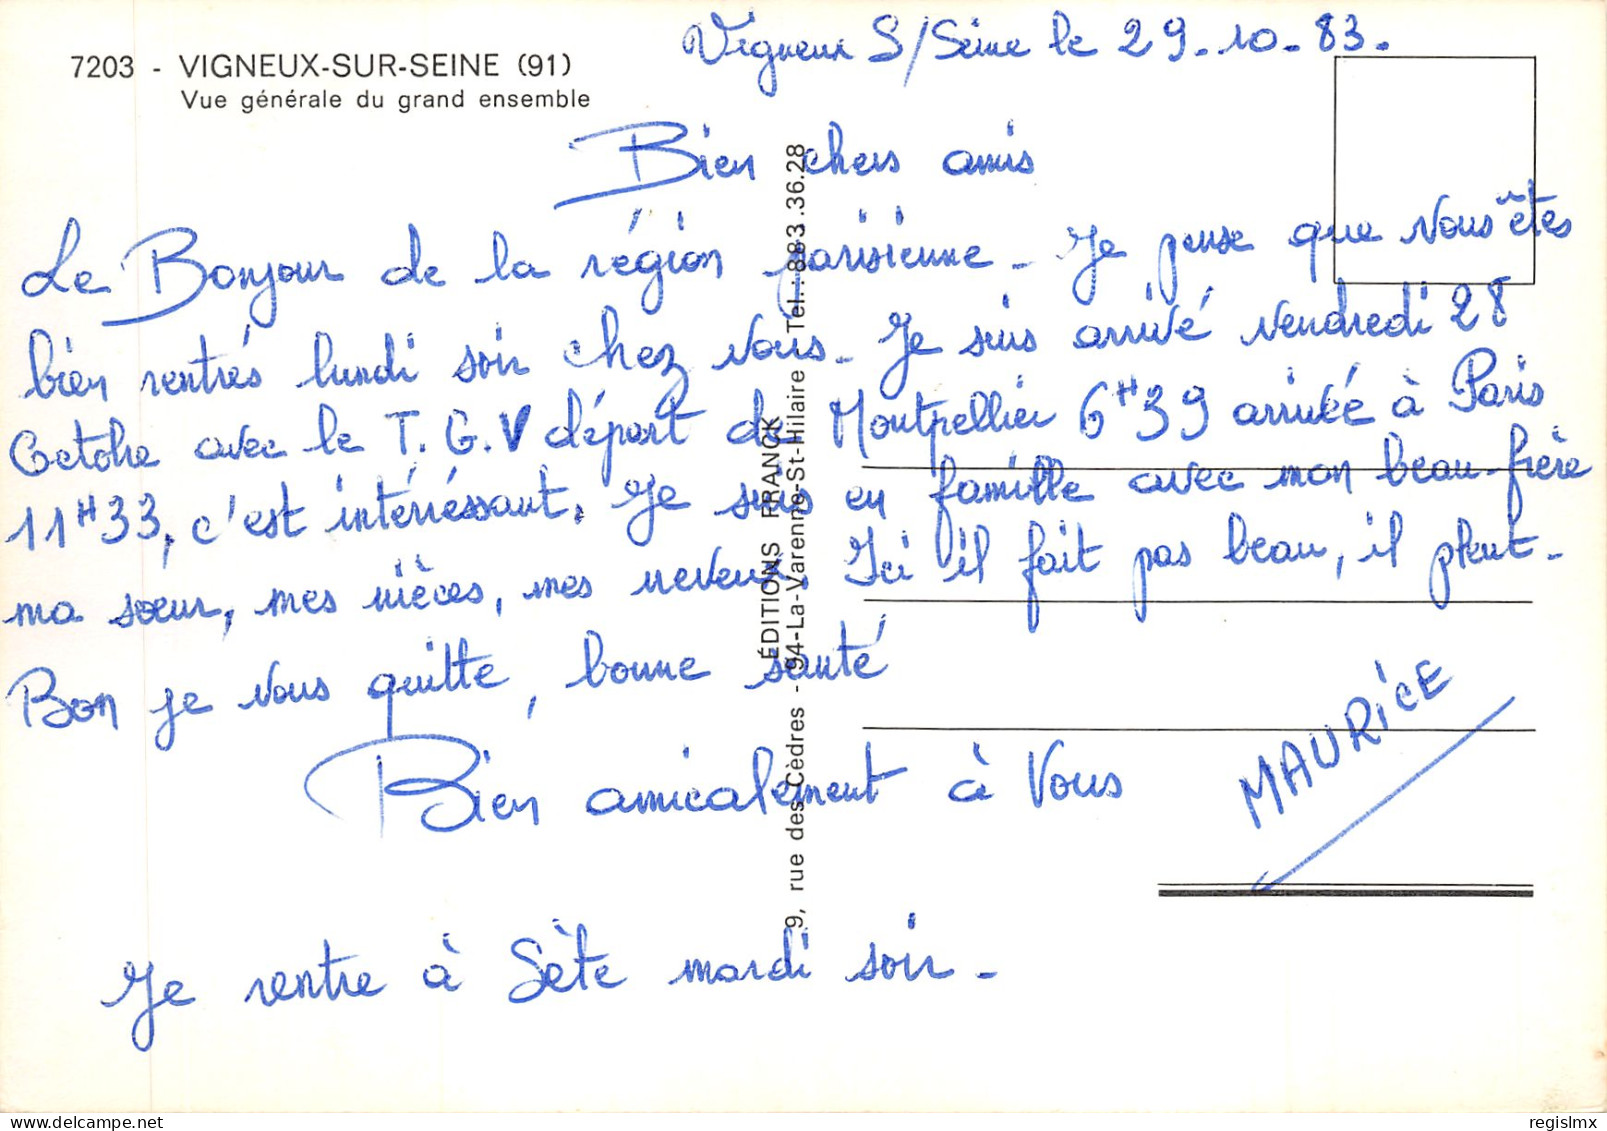 Vigneux S/Seine le 29-10-83.
7203 - VIGNEUX-SUR-SEINE (91)
Vue générale du grand ensemble
Bien chers amis
Le Bonjour de la région parisienne - Je pense que vous êtes
bien rentrés lundi soir chez vous - Je suis arrivé vendredi 28
Octobre avec le T.G.V départ de Montpellier 6H39 arrivée à Paris
11H33, c'est intérréssant. Je suis en famille avec mon beau-frère
ma sœur, mes nièces, mes neveux. Ici il fait pas beau, il pleut -
Bon je vous quitte, bonne santé
Bien amicalement à Vous
MAURICE
Je rentre à Sète mardi soir -
ÉDITIONS FRANCK
9, rue des Cèdres - 94-La-Varenne-St-Hilaire Tel : 883.36.28
delcampe.net
regislmx